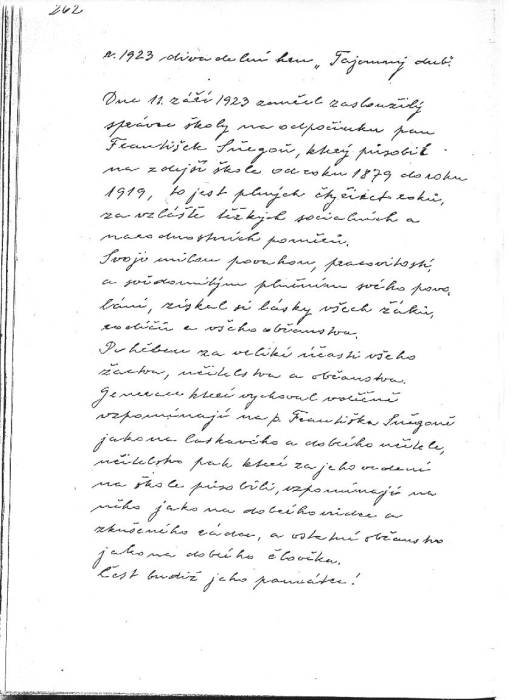 262
r. 1923 divadelní hru „Tajomný dub".
Dne 11. září 1923 zemřel zasloužilý
správce školy na odpočinku pan
František Sňegoň, který působil
na zdejší škole od roku 1879 do roku
1919, to jest plných čtyřicet roků,
za vzláště těžkých socialních a
narodnostních poměrů.
Svoji milou povahou, pracovitostí,
a svědomitým plněním svého povo-
lání, získal si lásky všech žáků,
rodičů a všeho občanstva.
Pohřben za veliké účasti všeho
žactva, učitelstva a občanstva.
Generace které vychoval vděčně
vzpomínají na p. Františka Sňegoně
jako na laskavého a dobrého učitele,
učitelstvo pak které za jeho vedení
na škole působili, vzpomínají na
něho jako na dobrého vůdce a
zkušeného rádce, a ostatní občanstvo
jako na dobrého člověka.
Čest budiž jeho památce!